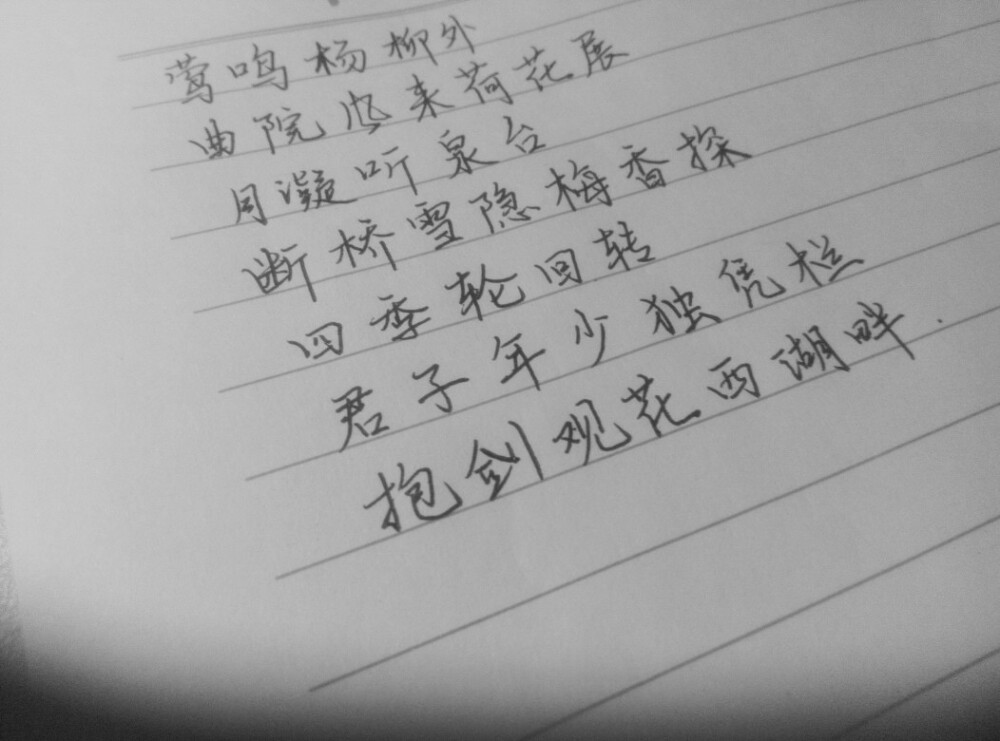 莺鸣杨柳外
曲院风来荷花展
月凝听泉台
断桥雪隐梅香探
四季轮回转
君子年少独凭栏
抱剑观花西湖畔.